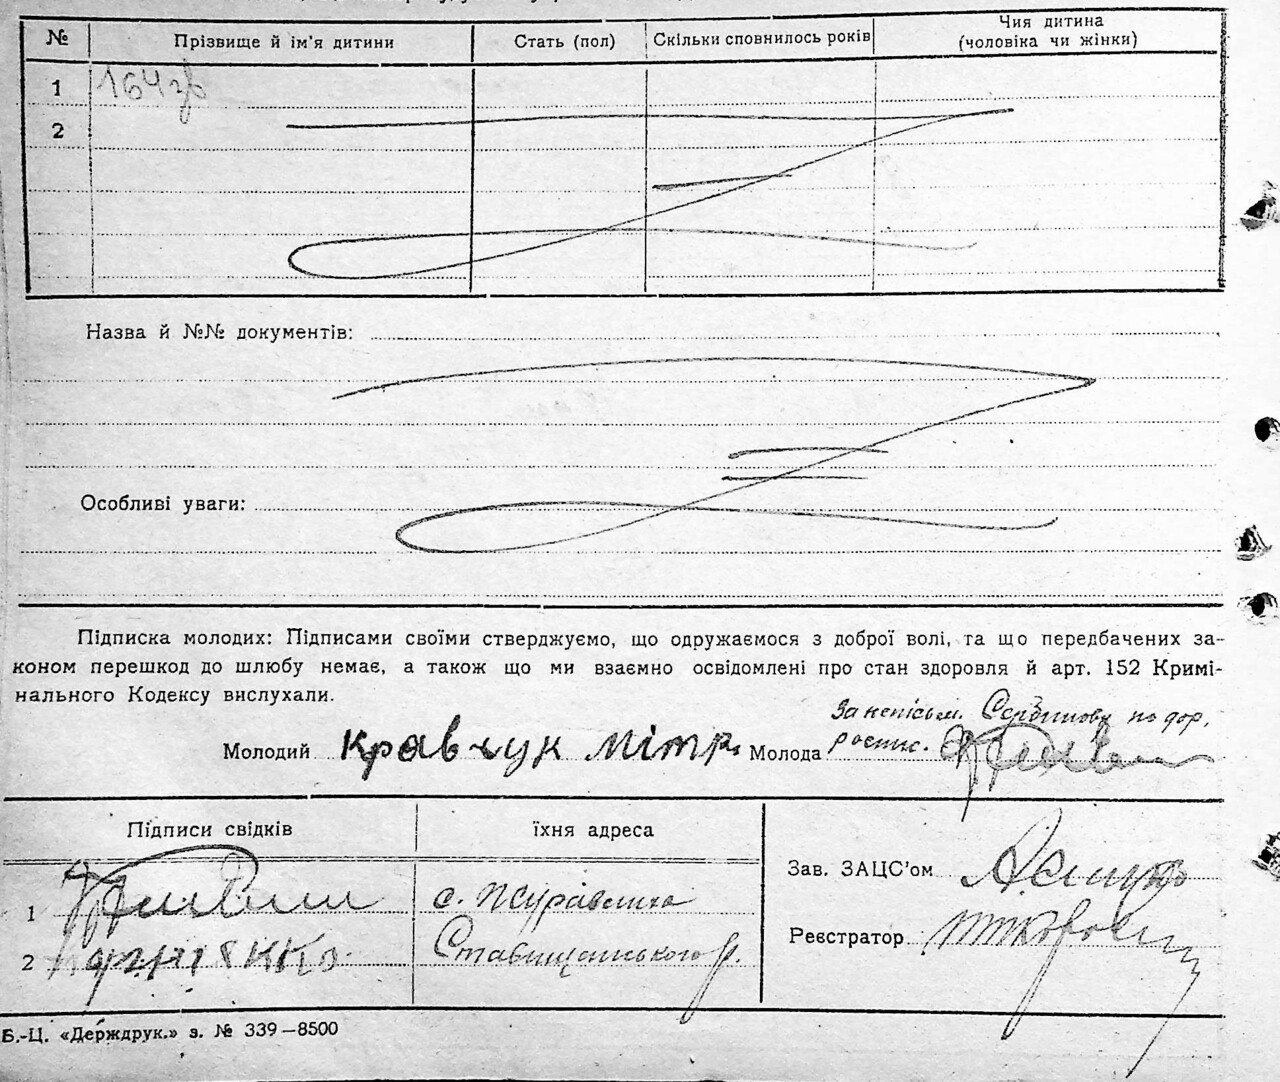 № Прізвище й ім'я дитини Стать (пол) Скільки сповнилось років Чия дитина
(чоловіка чи жінки)
1 164зв
2
Назва й №№ документів:
Особливі уваги:
Підписка молодих: Підписами своїми стверджуємо, що одружаємося з доброї волі, та що передбачених за-
коном перешкод до шлюбу немає, а також що ми взаємно освідомлені про стан здоровля й арт. 152 Кримі-
нального Кодексу вислухали.
За непісьм. по дор.
Молодий Кравчук Мітр. Молода роспис.
Підписи свідків їхня адреса
Зав. ЗАЦС'ом
1 с. Журавлиха
Реєстратор
2 Ставищанського р.
Б.-Ц. «Держдрук.» з. № 339—8500